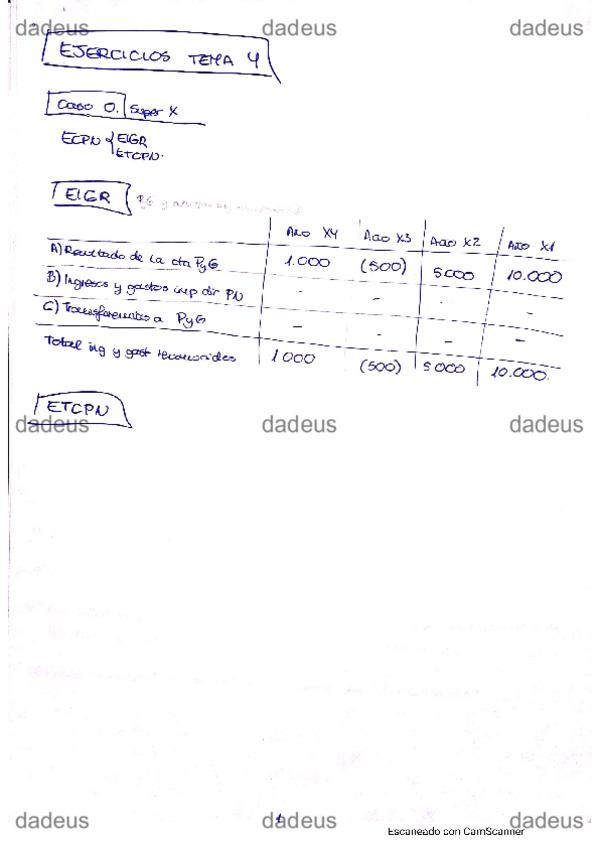 dadeus dadeus dadeus
EJERCICIOS TEMA 4
Caso 0. Super X
ECPN { EIGR
ETCPN.
EIGR PyG y
Año X4 Año X3 Año X2 Año X1
A) Resultado de la cta PyG 1.000 (500) 5000 10.000
B) Ingresos y gastos imp dir PN - - - -
C) Transferencias a PyG - - - -
Total ing y gast reconocidos 1000 (500) 5000 10.000.
ETCPN
dadeus dadeus dadeus
dadeus 1 dadeus dadeus
Escaneado con CamScanner